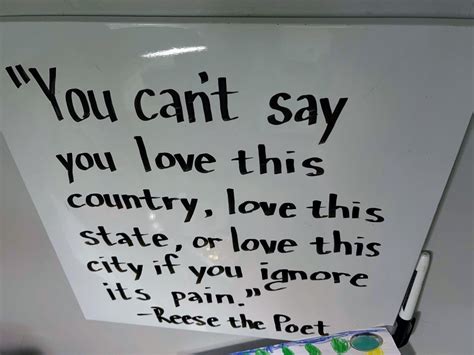 "You can't say
you love this
country, love this
state, or love this
city if you ignore
its pain."
-Reese the Poet